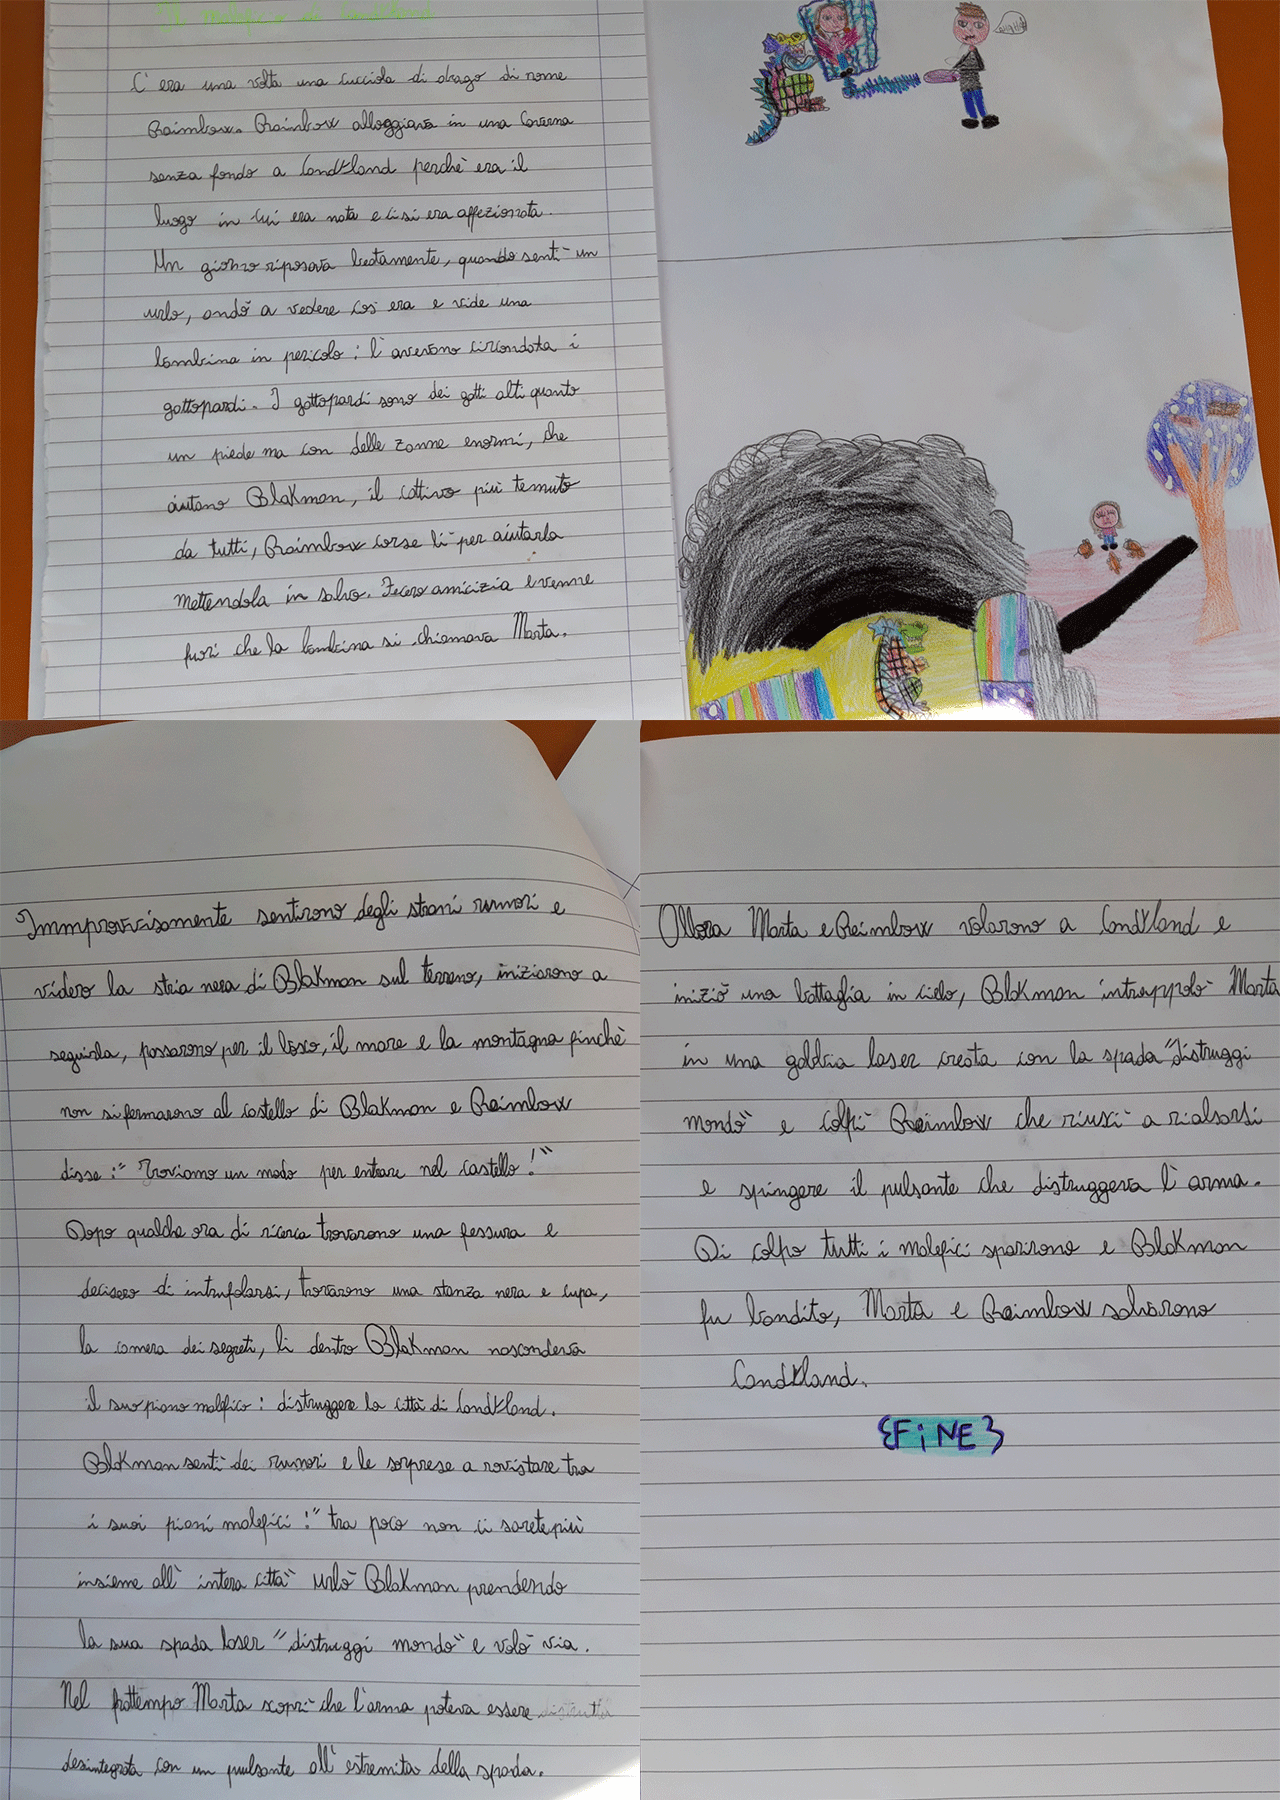 Il malefico di Candkland
C'era una volta una cucciola di drago di nome
Raimbow. Raimbow alloggiava in una caverna
senza fondo a Candkland perchè era il
luogo in cui era nata e ci si era affezionata.
Un giorno riposava beatamente, quando sentì un
urlo, andò a vedere cos'era e vide una
bambina in pericolo: l'avevano circondata i
gattopardi. I gattopardi sono dei gatti alti quanto
un piede ma con delle zanne enormi, che
aiutano Blakman, il cattivo più temuto
da tutti, Raimbow corse lì per aiutarla
mettendola in salvo. Fecero amicizia e venne
fuori che la bambina si chiamava Marta.
Immprovvisamente sentirono degli strani rumori e
videro la stria nera di Blakman sul terreno, iniziarono a
seguirla, passarono per il bosco, il mare e la montagna finchè
non si fermarono al castello di Blakman e Raimbow
disse: "Troviamo un modo per entrare nel castello!"
Dopo qualche ora di ricerca trovarono una fessura e
decisero di intrufolarsi, trovarono una stanza nera e cupa,
la camera dei segreti, lì dentro Blakman nascondeva
il suo piano malefico: distruggere la città di Candkland.
Blakman sentì dei rumori e le sorprese a rovistare tra
i suoi piani malefici!" tra poco non ci sarete più
insieme all'intera città" urlò Blakman prendendo
la sua spada laser "distruggi mondo" e volò via.
Nel frattempo Marta scoprì che l'arma poteva essere distrutta
desintegrata con un pulsante all'estremita della spada.
Allora Marta e Raimbow volarono a Candkland e
iniziò una battaglia in cielo, Blakman intrappolò Marta
in una gabbia laser creata con la spada "distruggi
mondo" e colpì Raimbow che riuscì a rialzarsi
e spingere il pulsante che distruggeva l'arma.
Di colpo tutti i malefici sparirono e Blakman
fu bandito, Marta e Raimbow salvarono
Candkland.
FiNE